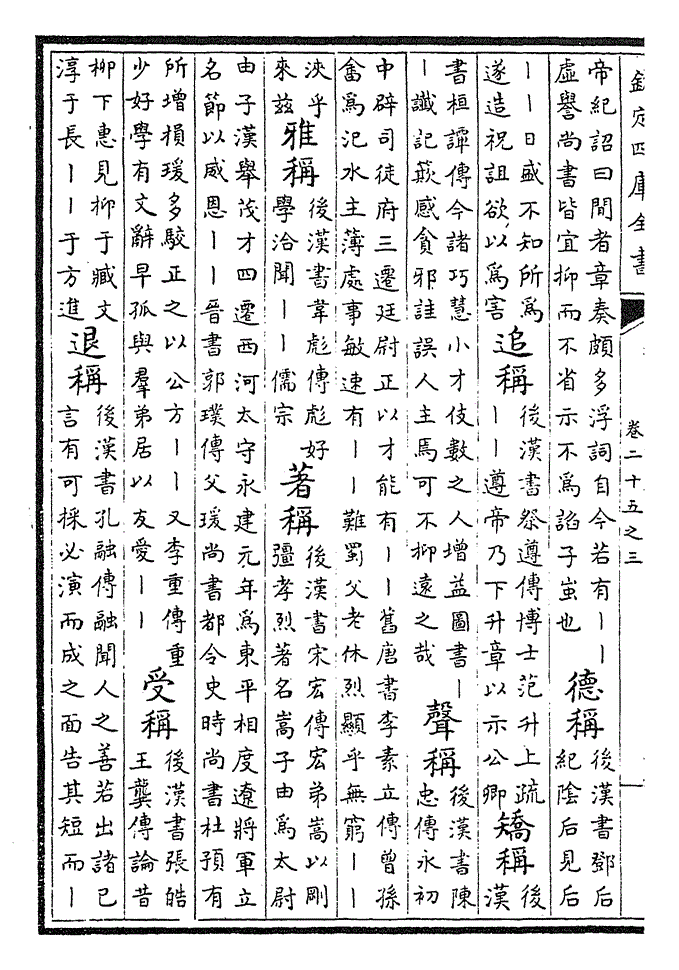 欽定四庫全書
卷二十五之三
帝紀詔曰間者章奏頗多浮詞自今若有丨丨
虛譽尚書皆宜抑而不省示不為諂子蚩也
德稱
後漢書鄧后
紀陰后見后
丨丨日盛不知所為
遂造祝詛欲以為害
追稱
後漢書祭遵傳博士范升上疏
丨丨遵帝乃下升章以示公卿
矯稱
後
漢
書桓譚傳今諸巧慧小才伎數之人增益圖書丨
丨讖記欺惑貪邪詿誤人主焉可不抑遠之哉
聲稱
後漢書陳
忠傳永初
中辟司徒府三遷廷尉正以才能有丨丨舊唐書李素立傳曾孫
畬為汜水主簿處事敏速有丨丨難蜀父老休烈顯乎無窮丨丨
浹乎
來茲
雅稱
後漢書韋彪傳彪好
學洽聞丨丨儒宗
著稱
後漢書宋宏傳宏弟嵩以剛
彊孝烈著名嵩子由為太尉
由子漢舉茂才四遷西河太守永建元年為東平相度遼將軍立
名節以威恩丨丨晉書郭璞傳父瑗尚書都令史時尚書杜預有
所增損瑗多駮正之以公方丨丨又李重傳重
少好學有文辭早孤與羣弟居以友愛丨丨
受稱
後漢書張皓
王龔傳論昔
柳下惠見抑于臧文
淳于長丨丨于方進
退稱
後漢書孔融傳融聞人之善若出諸已
言有可採必演而成之面告其短而丨